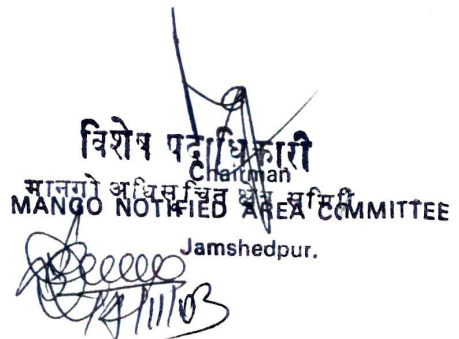 विशेष पदाधिकारी
Chairman
मानगो अधिसूचित क्षेत्र समिति
MANGO NOTIFIED AREA COMMITTEE
Jamshedpur.
14/11/03